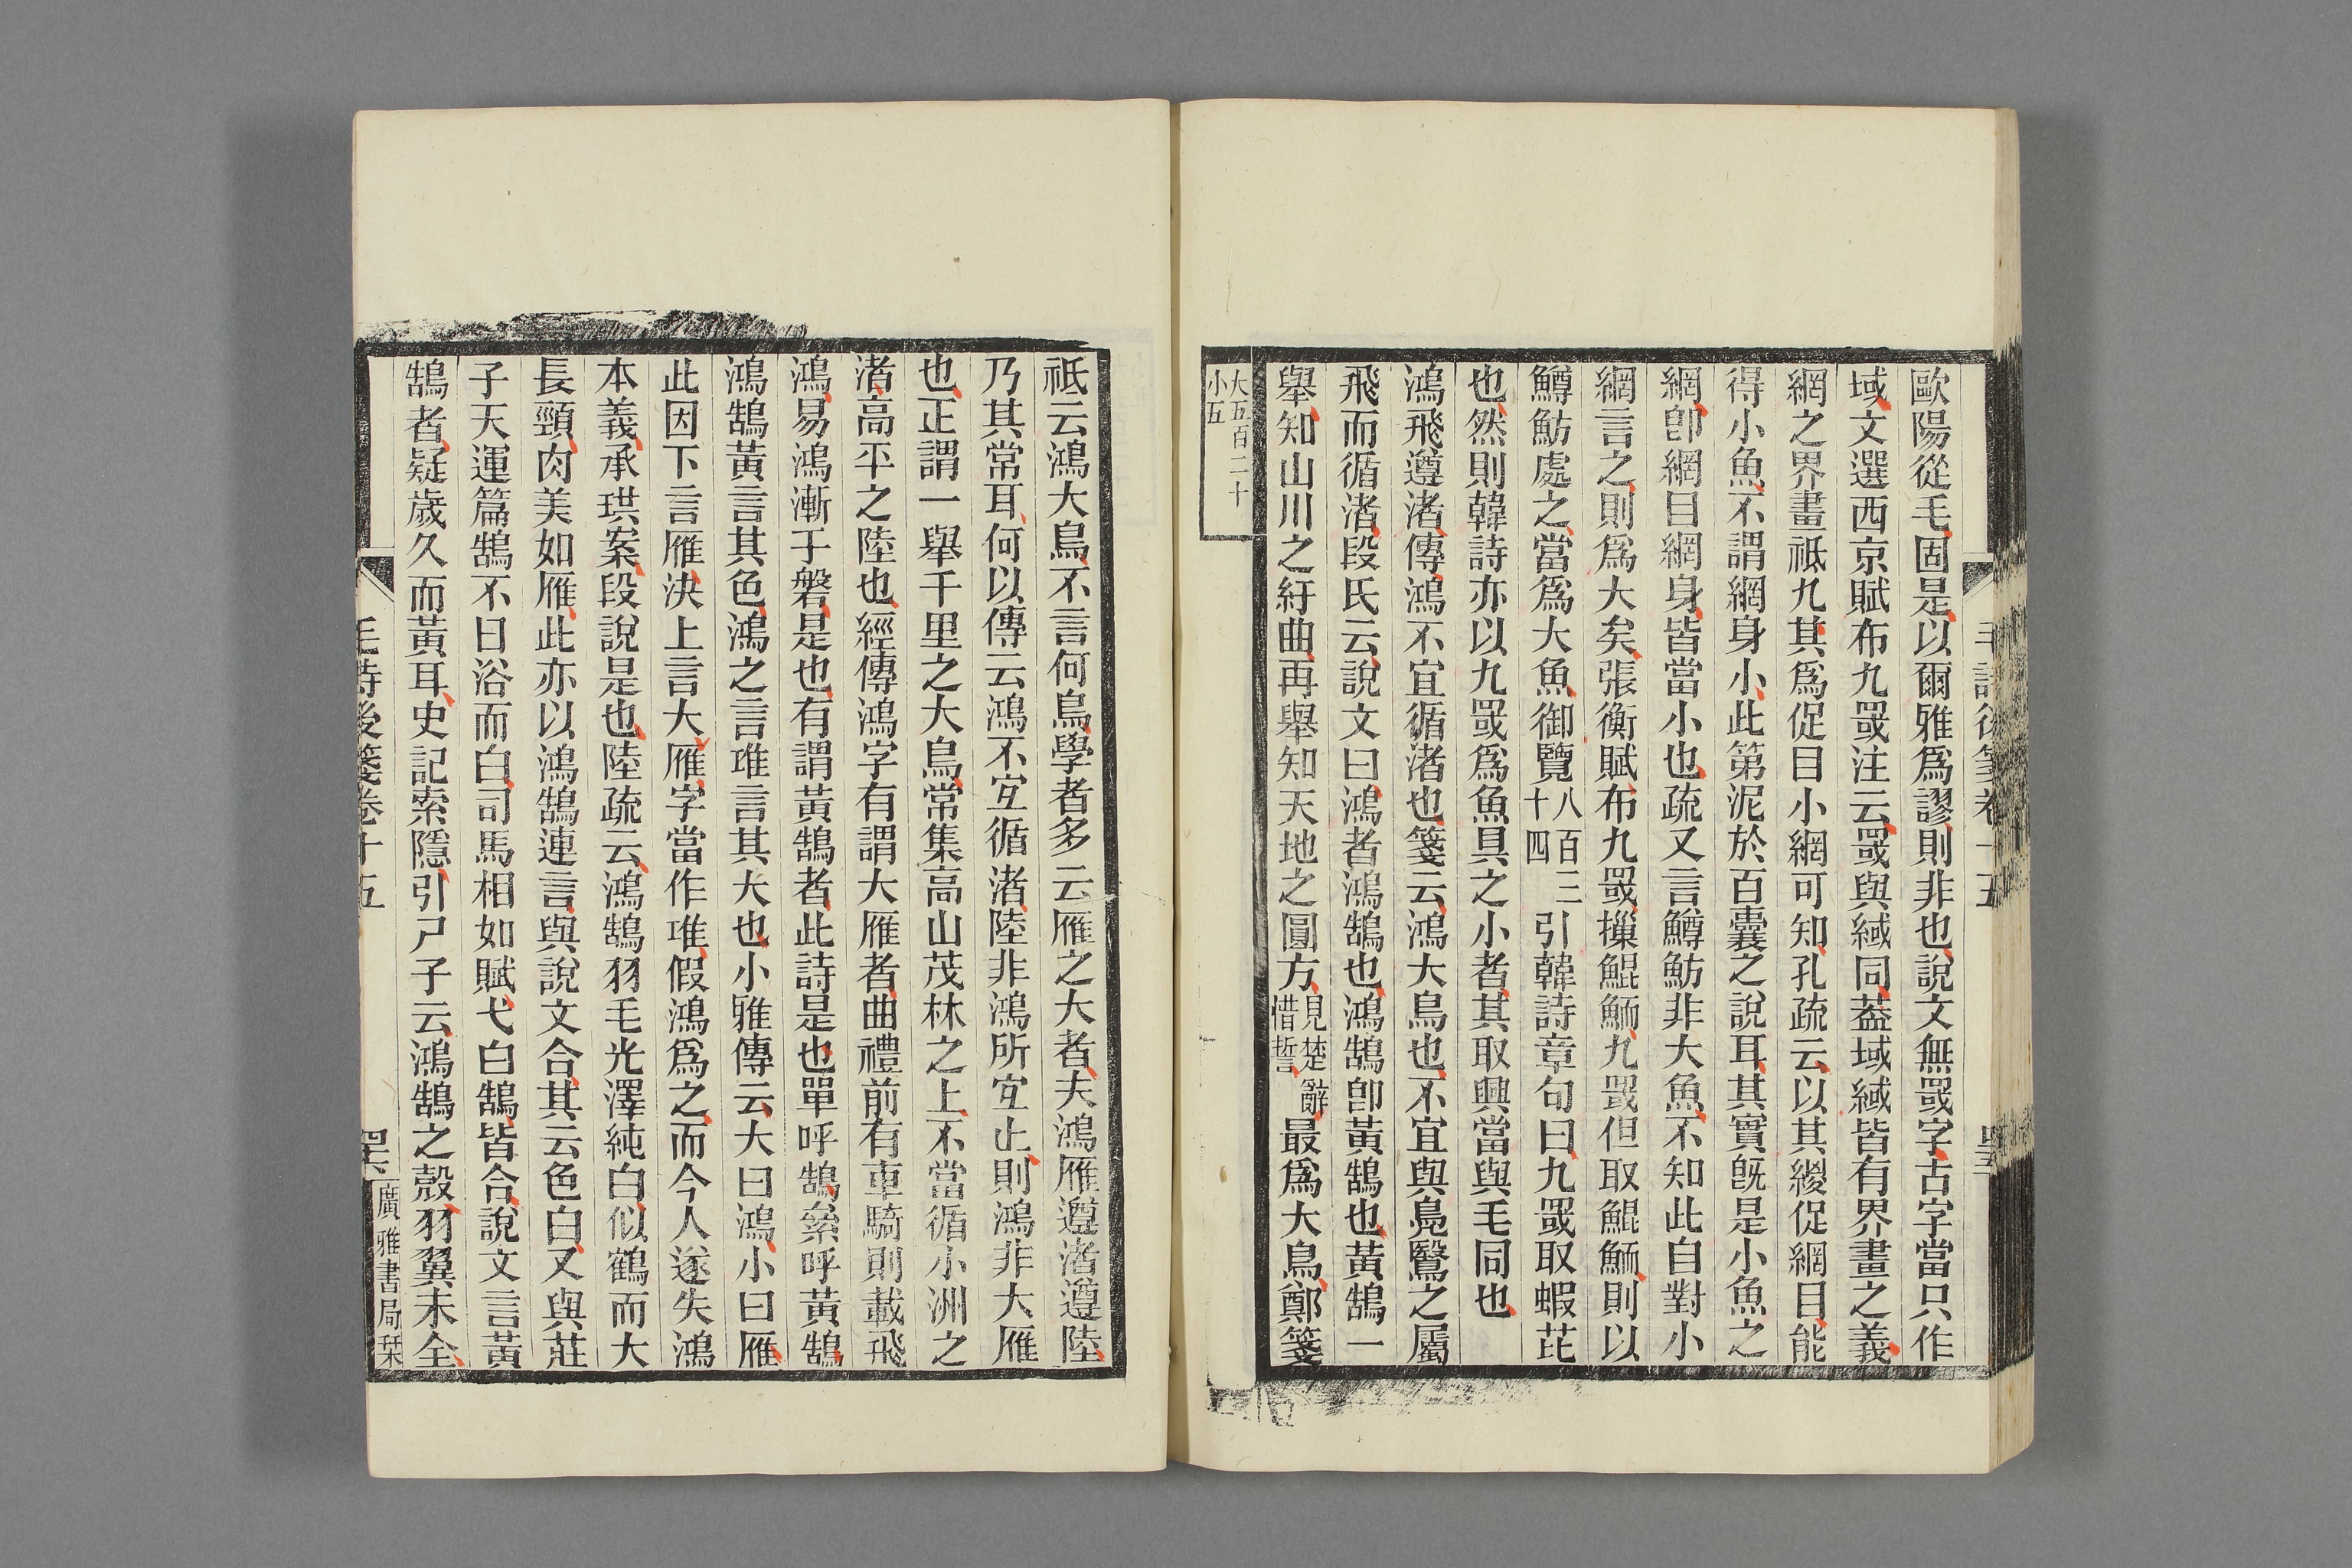 歐陽從毛固是以爾雅爲謬則非也說文無罭字古字當只作
域文選西京賦布九罭注云罭與緎同葢域緎皆有界畫之義
網之界畫祗九其爲促目小網可知孔疏云以其緵促網目能
得小魚不謂網身小此第泥於百囊之說耳其實旣是小魚之
網卽網目網身皆當小也疏又言鱒魴非大魚不知此自對小
網言之則爲大矣張衡賦布九罭摷鯤鮞九罭但取鯤鮞則以
鱒魴處之當爲大魚御覽八百三十四引韓詩章句曰九罭取蝦芘
也然則韓詩亦以九罭爲魚具之小者其取興當與毛同也
鴻飛遵渚傳鴻不宜循渚也箋云鴻大鳥也不宜與鳧鷖之屬
飛而循渚段氏云說文曰鴻者鴻鵠也鴻鵠卽黃鵠也黃鵠一
舉知山川之紆曲再舉知天地之圓方見楚辭惜誓最爲大鳥鄭箋
大五百二十
小五
祗云鴻大鳥不言何鳥學者多云雁之大者夫鴻雁遵渚遵陸
乃其常耳何以傳云鴻不宐循渚陸非鴻所宐止則鴻非大雁
也正謂一舉千里之大鳥常集高山茂林之上不當循小洲之
渚高平之陸也經傳鴻字有謂大雁者曲禮前有車騎則載飛
鴻易鴻漸于磐是也有謂黃鵠者此詩是也單呼鵠絫呼黃鵠
鴻鵠黃言其色鴻之言琟言其大也小雅傳云大曰鴻小曰雁
此因下言雁決上言大雁字當作琟假鴻爲之而今人遂失鴻
本義承珙案段說是也陸疏云鴻鵠羽毛光澤純白似鶴而大
長頸肉美如雁此亦以鴻鵠連言與說文合其云色白又與莊
子天運篇鵠不日浴而白司馬相如賦弋白鵠皆合說文言黃
鵠者疑歲久而黃耳史記索隱引尸子云鴻鵠之鷇羽翼未全
毛詩後箋卷十五
廣雅書局栞